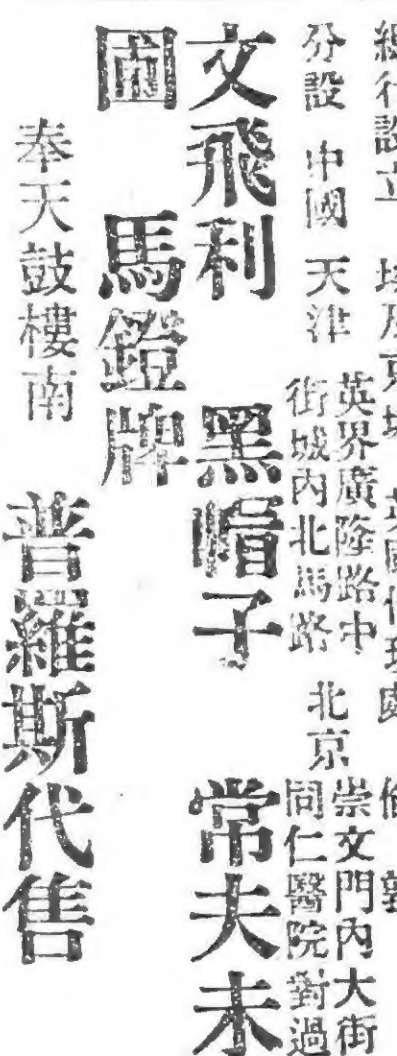 總行設立 埃及京城 英國代理處 倫敦
分設 中國 天津 英界廣隆路中街城內北馬路 北京 崇文門內大街同仁醫院對過
文飛利 黑帽子 常夫未
圍 馬鐙牌
奉天鼓樓南 普羅斯代售